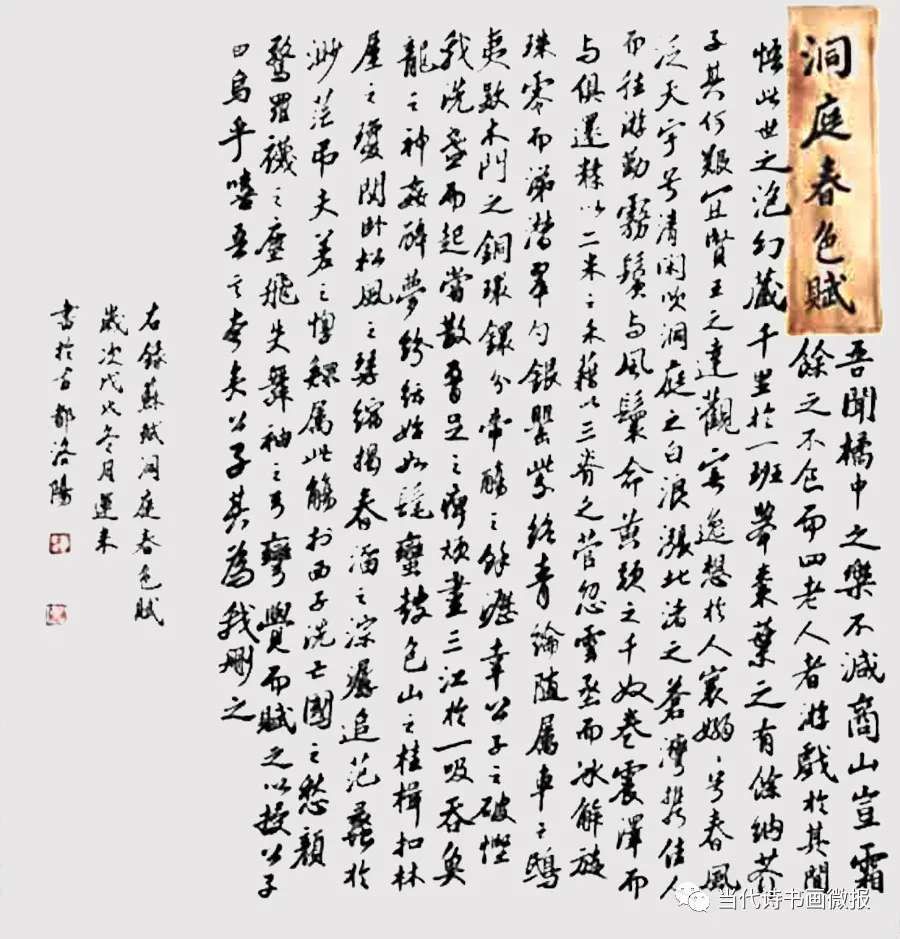 洞庭春色賦
吾聞橘中之樂不減商山豈霜
餘之不食而四老人者游戲於其間
悟此世之泡幻藏千里於一班舉棗葉之有餘納芥
子其何艱宜賢王之達觀寄逸想於人寰嫋〻兮春風
泛天宇兮清閑吹洞庭之白浪漲北渚之蒼灣携佳人
而往游勤霧鬢与風鬟命黃頭之千奴卷震澤而
与俱還糅以二米之禾藉以三脊之菅忽雲烝而冰解旋
珠零而涕潸翠勺銀罌紫絡青綸随属車之鴟
夷款木門之銅分帝觴之餘瀝幸公子之破慳
我洗盞而起嘗散腰足之痹頑盡三江於一吸吞魚
龍之神姦醉夢紛紜始如髦蠻鼓包山之桂楫扣林
屋之瓊関卧松風之瑟縮揭春溜之淙潺追范蠡於
渺茫吊夫差之惸鰥属此觴於西子洗亡國之愁顔
驚羅襪之塵飛失舞袖之弓彎覺而賦之以授公子
曰烏乎嘻吾言夸矣公子其為我刪之
右錄蘇軾洞庭春色賦
歲次戊戌冬月運来
書於古都洛陽
当代诗书画微报